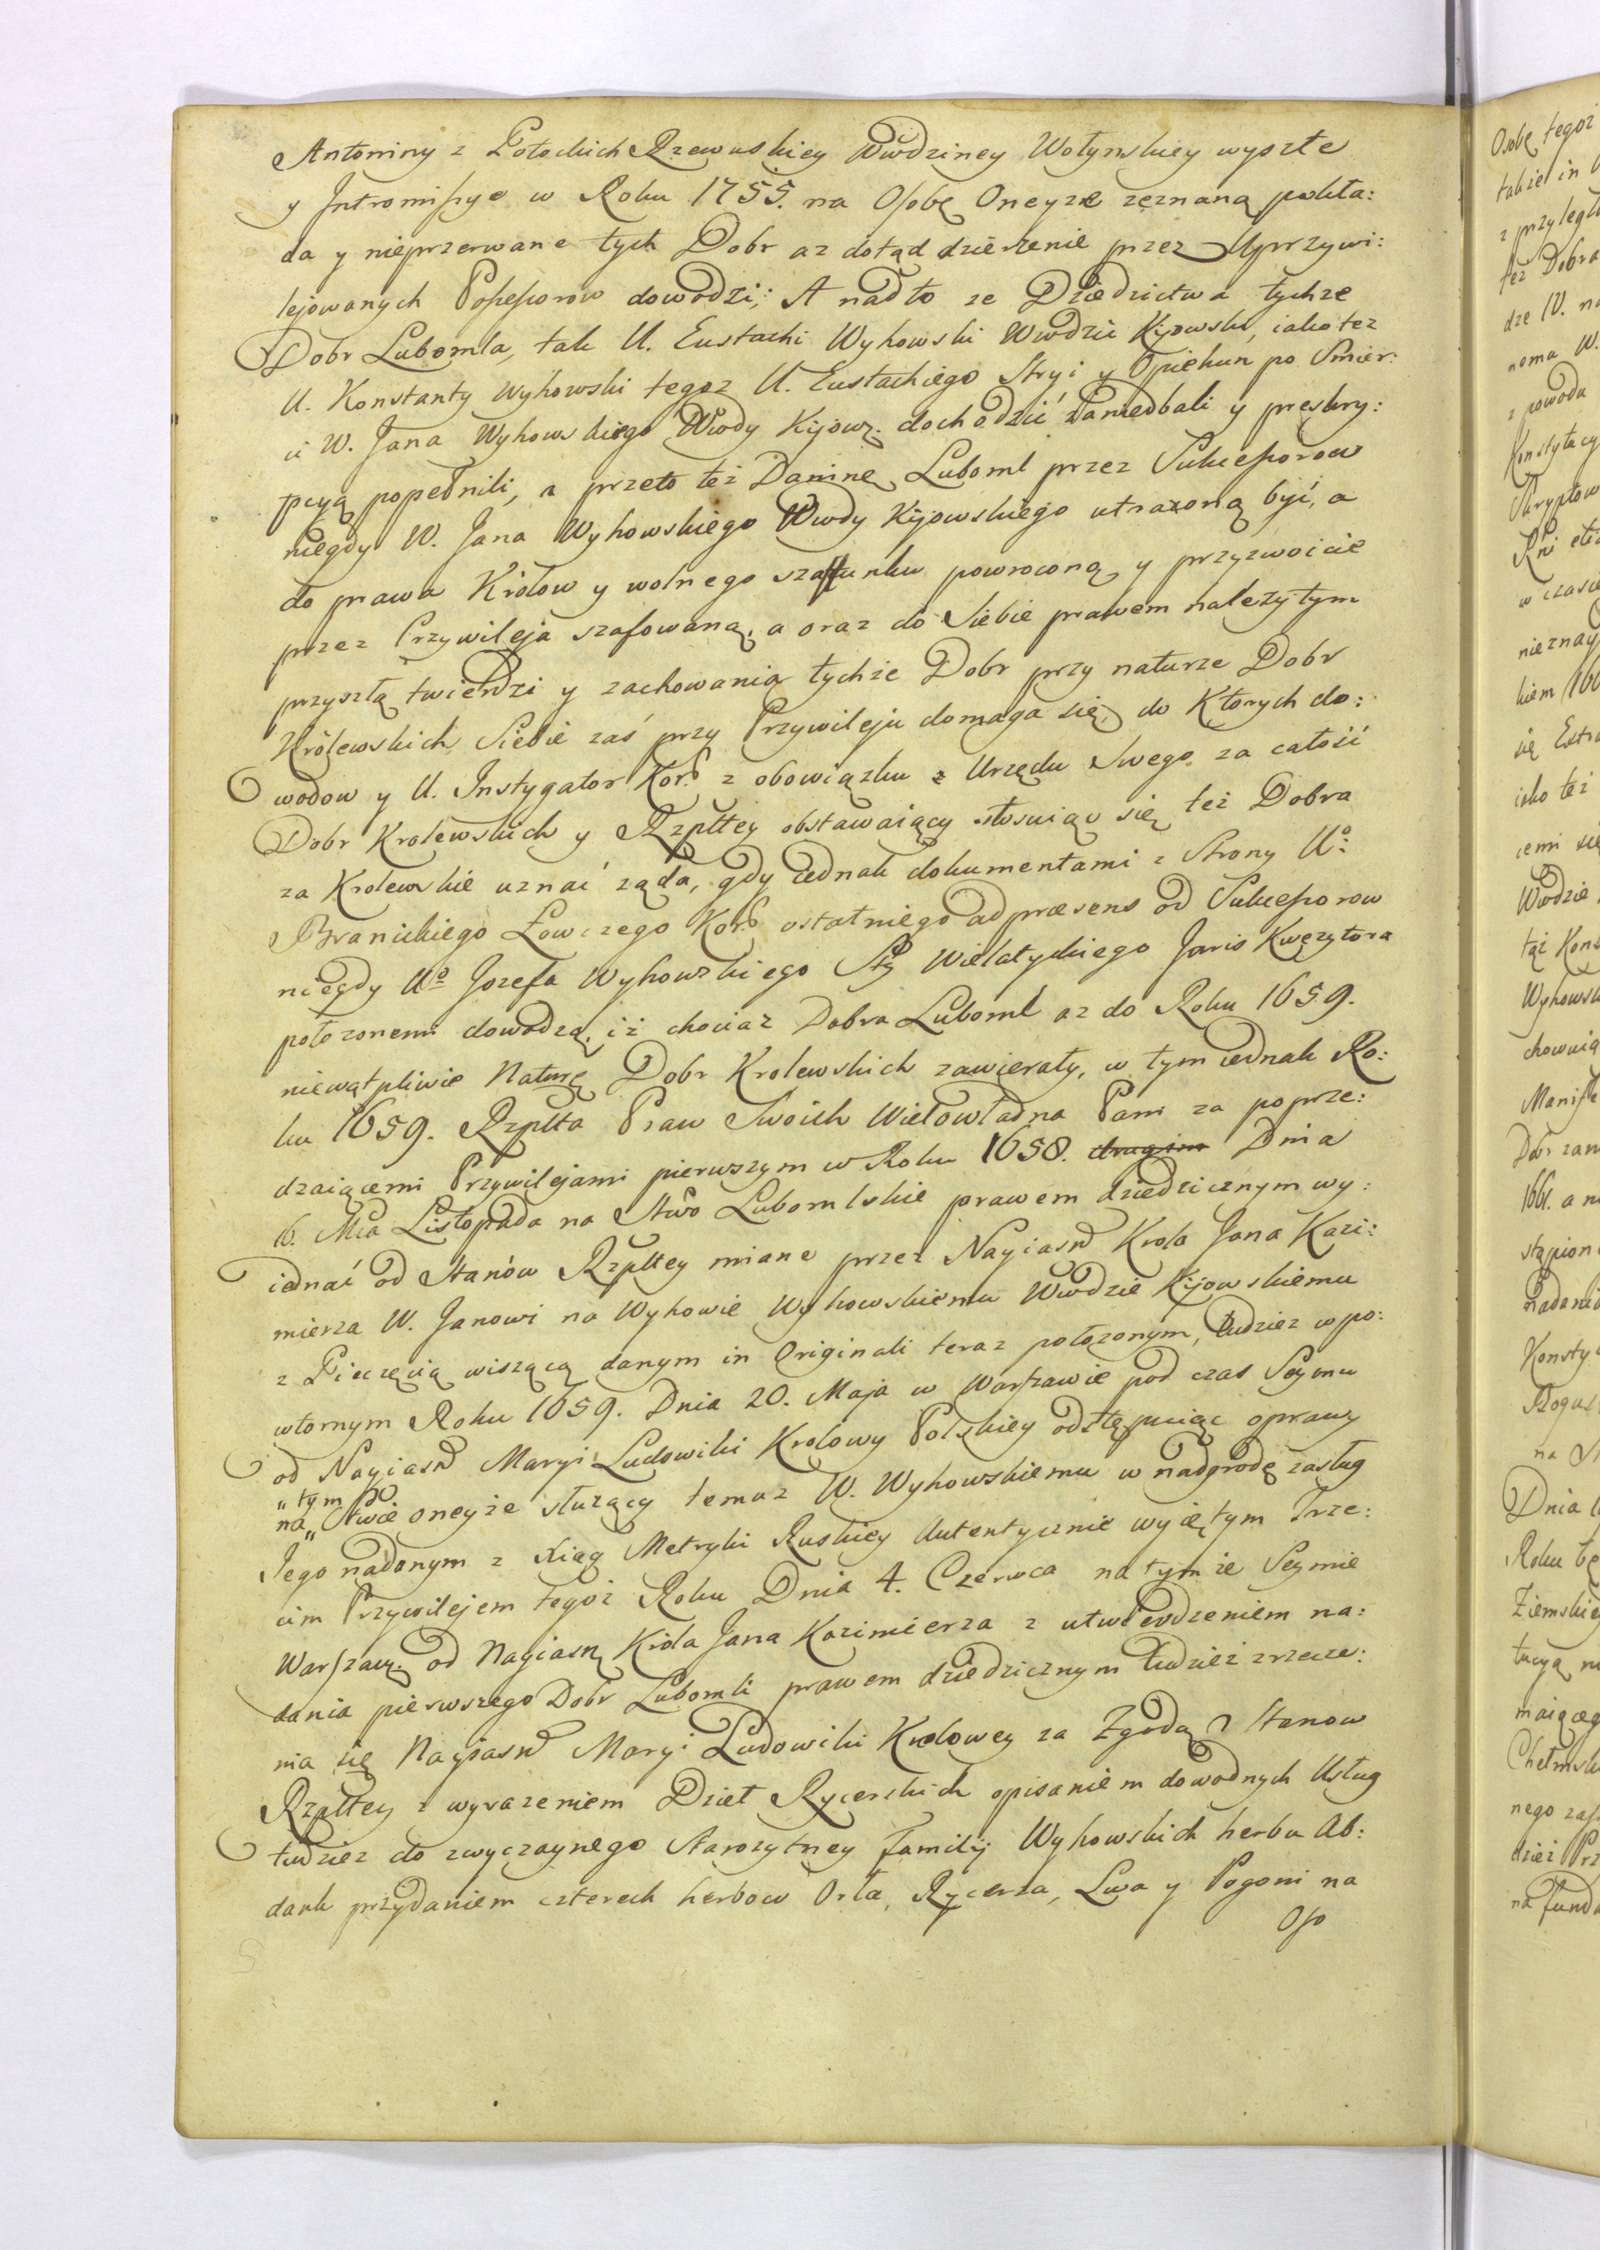 Antoniny z Potockich Rzewuskiey Wwdziney Wołynskiey wyszłe
y Intromissye w Roku 1755. na Osobę Oneyze zeznaną pokła:
da y nieprzerwane tych Dobr az dotąd dzierzenie przez Uprzywi:
lejowanych Possessorow dowodzi; A nadto ze Dziedzictwa tychze
Dobr Lubomla, tak U. Eustachi Wyhowski Wwdzic Kijowski, iako tez
U. Konstanty Wyhowski tegoz U. Eustachiego Stryi y Opiekun po Smier:
ci W. Jana Wyhowskiego Wwdy Kijow: dochodzić zaniedbali y preskry:
pcyą popełnili, a przeto też Daninę Luboml przez Sukcessorow
niegdy W. Jana Wyhowskiego Wwdy Kijowskiego utraconą być, a
do prawa Królow y wolnego szafunku powroconą y przyzwoicie
przez Przywileja szafowaną, a oraz do Siebie prawem należytym
przyszłą twierdzi y zachowania tychże Dobr przy naturze Dobr
Królewskich, Siebie zaś przy Przywileju domaga się, do Ktorych do:
wodow y U. Instygator Kor: z obowiązku z Urzędu Swego za całość
Dobr Krolewskich y Rzpltey obstawaiący stosuiąc się też Dobra
za Krolewskie uznać ząda, gdy iednak dokumentami z Strony Uo:
Branickiego Łowczego Kor: ostatniego ad præsens od Sukcessorow
niegdy Uo Jozefa Wyhowskiego Sty Wielatyckiego Juris Kwezytora
połozonemi dowodzą, iż chociaz Dobra Luboml az do Roku 1659.
niewątpliwie Naturę Dobr Krolewskich zawierały, w tym iednak Ro:
ku 1659. Rzplta Praw Swoich Wielowładna Pani za poprze:
dzaiącemi Przywilejami pierwszym w Roku 1658. drugim Dnia
16. Mca Listopada na Stwo Lubomlskie prawem dziedzicznym wy:
iednać od Stanów Rzpltey miane przez Nayiasn Krola Jana Kazi:
mierza W. Janowi na Wyhowie Wyhowskiemu Wwdzie Kijowskiemu
z Pieczęcią wiszącą danym in Originali teraz połozonym, tudziez w po:
wtornym Roku 1659. Dnia 20. Maja w Warszawie pod czas Seymu
od Nayiasn Maryi Ludowiki Krolowy Polskiey odstępuiąc oprawy
„tym
na„ Stwie oneyże służący temuz W. Wyhowskiemu w nadgrodę zasług
Jego nadonym z Xiąg Metryki Ruskiey Autentycznie wyiętym Trze:
cim Przywilejem tegoż Roku Dnia 4. Czerwca na tymże Seymie
Warszaw: od Nayiasn Króla Jana Kazimierza z utwierdzeniem na:
dania pierwszego Dobr Lubomli prawem dziedzicznym tudzież zrzecze:
nia się Nayiasn Maryi Ludowiki Krolowey za Zgodą Stanow
Rzpltey z wyrazeniem Dzieł Rycerskich opisaniem dowodnych Usług
tudziez do zwyczaynego Starozytney familij Wyhowskich herbu Ab:
dank przydaniem czterech herbow Orła, Rycerza, Lwa y Pogoni na
Oso